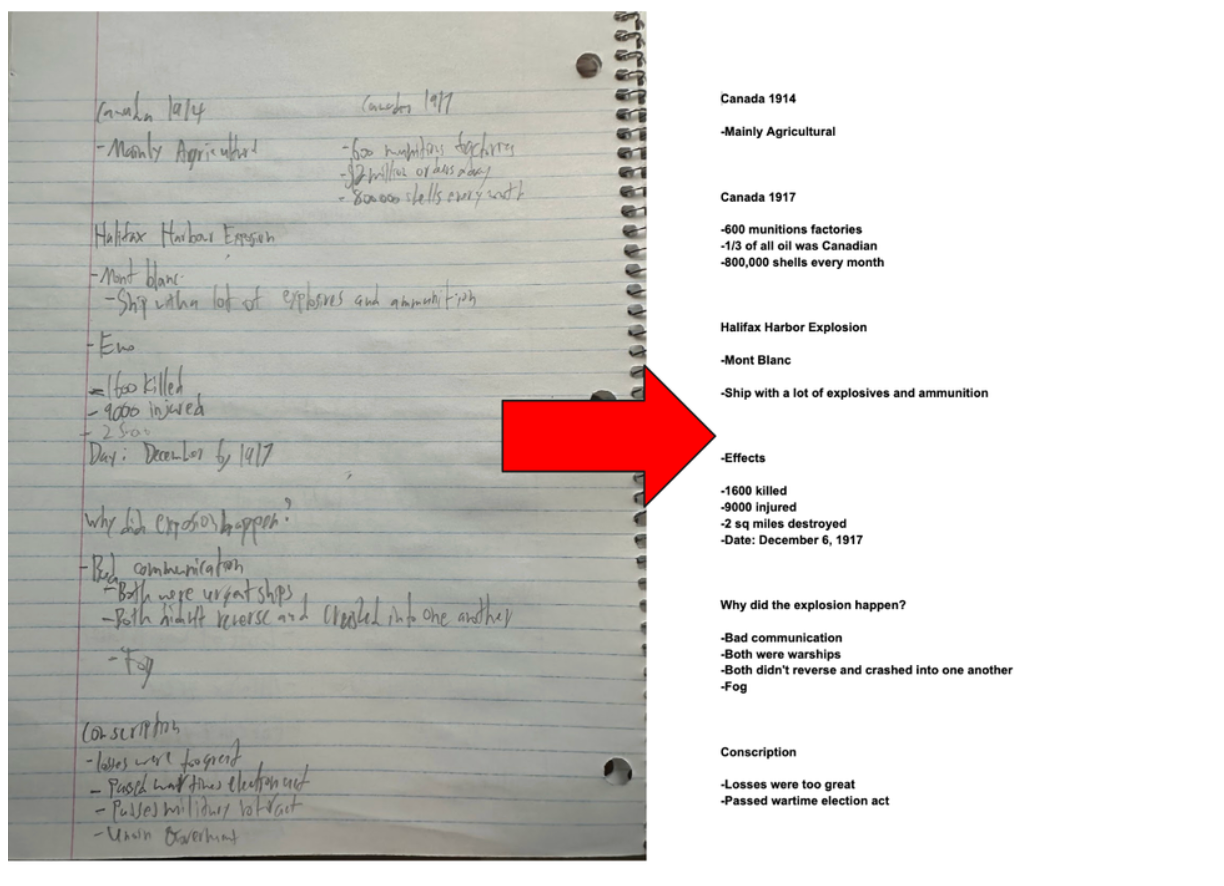 Canada 1914
Canada 1917
- Mainly Agricultural
- 600 munitions factories
- $2 million orders a day
- 800000 shells every month
Halifax Harbour Explosion
- Mont blanc
- Ship with a lot of explosives and ammunition
-
- 1600 killed
- 9000 injured
-
Day: December 6, 1917
Why did explosion happen?
- Bad communication
- Both were ships
- Both didn't reverse and crashed into one another
- Fog
Conscription
- losses were too great
- Passed war times election act
- Passes military act
- Union Government
Canada 1914
-Mainly Agricultural
Canada 1917
-600 munitions factories
-1/3 of all oil was Canadian
-800,000 shells every month
Halifax Harbor Explosion
-Mont Blanc
-Ship with a lot of explosives and ammunition
-Effects
-1600 killed
-9000 injured
-2 sq miles destroyed
-Date: December 6, 1917
Why did the explosion happen?
-Bad communication
-Both were warships
-Both didn't reverse and crashed into one another
-Fog
Conscription
-Losses were too great
-Passed wartime election act